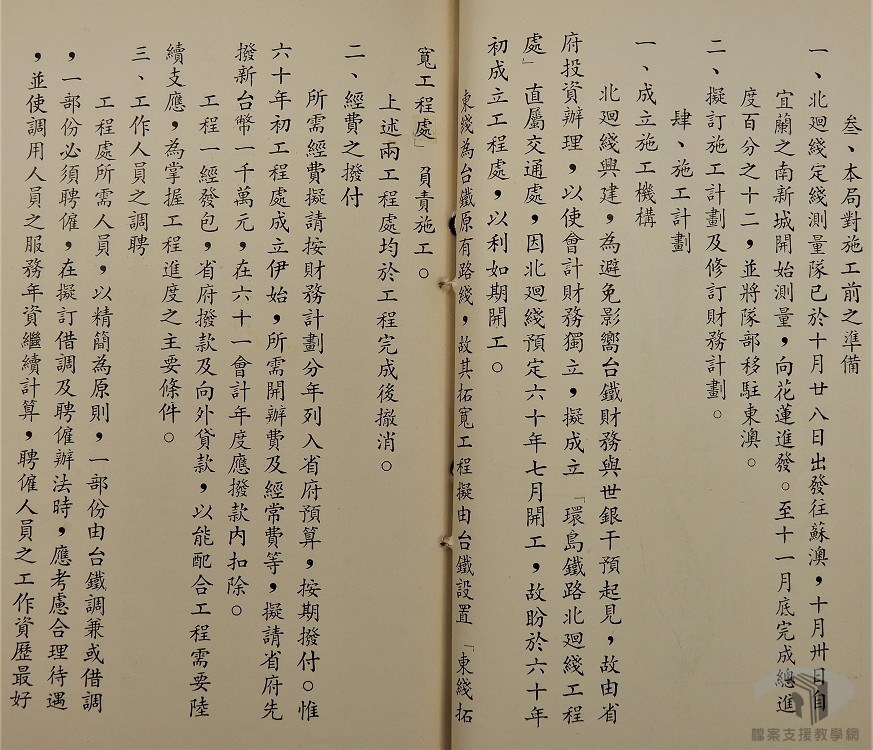 叁、本局對施工前之準備
一、北廻綫定綫測量隊已於十月廿八日出發往蘇澳，十月卅日自
宜蘭之南新城開始測量，向花蓮進發。至十一月底完成總進
度百分之十二，並將隊部移駐東澳。
二、擬訂施工計劃及修訂財務計劃。
肆、施工計劃
一、成立施工機構
北廻綫興建，為避免影嚮台鐵財務與世銀干預起見，故由省
府投資辦理，以使會計財務獨立，擬成立「環島鐵路北廻綫工程
處」直屬交通處，因北廻綫預定六十年七月開工，故盼於六十年
初成立工程處，以利如期開工。
東綫為台鐵原有路綫，故其拓寬工程擬由台鐵設置「東綫拓
寬工程處」負責施工。
上述兩工程處均於工程完成後撤消。
二、經費之撥付
所需經費擬請按財務計劃分年列入省府預算，按期撥付。惟
六十年初工程處成立伊始，所需開辦費及經常費等，擬請省府先
撥新台幣一千萬元，在六十一會計年度應撥款內扣除。
工程一經發包，省府撥款及向外貸款，以能配合工程需要陸
續支應，為掌握工程進度之主要條件。
三、工作人員之調聘
工程處所需人員，以精簡為原則，一部份由台鐵調兼或借調
，一部份必須聘僱，在擬訂借調及聘僱辦法時，應考慮合理待遇
，並使調用人員之服務年資繼續計算，聘僱人員之工作資歷最好
檔案支援教學網